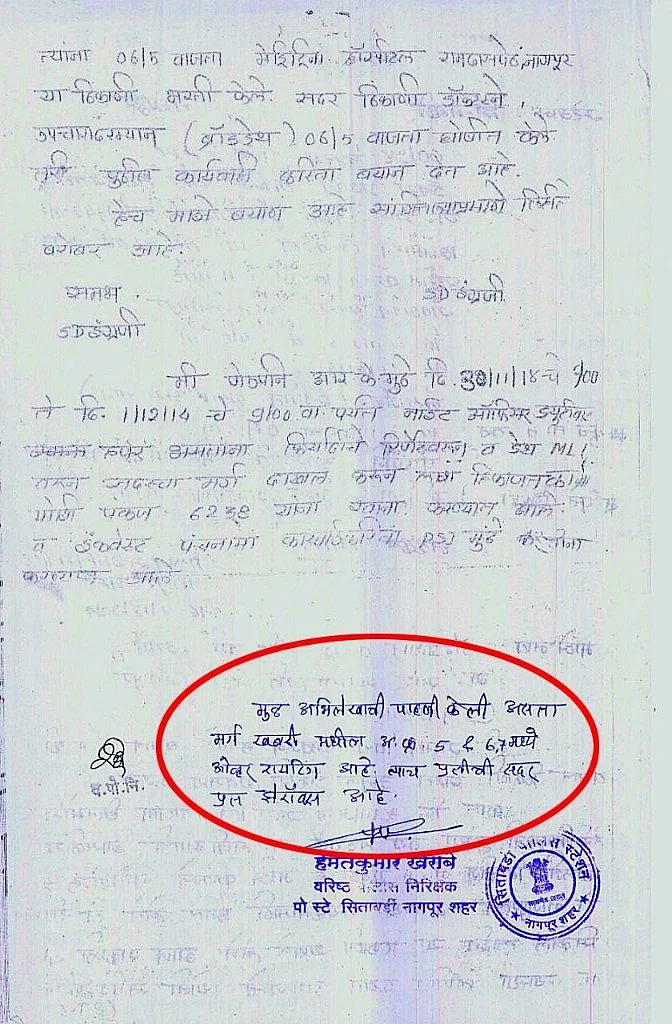 त्यांना 06/5 वाजता मेडिट्रिना हॉस्पीटल रामदासपेठ, नागपूर
या ठिकाणी भरती केले. सदर ठिकाणी डॉक्टरने,
उपचारादरम्यान (ब्रॉडडेथ) 06/5 वाजता घोषीत केले.
तरी पुढील कार्यवाही करिता बयान देत आहे.
हेच माझे बयाण आहे सांगितल्याप्रमाणे लिहीले
बरोबर आहे.
समक्ष. SD इंग्रजी
SD इंग्रजी
मी पोउपनि आर के मुंढे दि. 30/11/14 चे 9/00
ते दि. 1/12/14 चे 9/00 वा. पर्यंत नाईट ऑफिसर ड्युटीवर
हजर असतांना फिर्यादीचे रिपोर्टवरून व डेथ MLC
वरून सदरचा मर्ग दाखल करून
पंकज 6238 यांना रवाना करण्यात आले.
व इंक्वेस्ट पंचनामा कारवाईकरिता PSI मुंढे
करण्यात आले
मुळ अभिलेखाची पाहणी केली असता
मर्ग खबरी मधील अ.क्र. 5 & 6,7 मध्ये
ओव्हर रायटिंग आहे. त्याच प्रतीची सदर
प्रत झेरॉक्स आहे.
स.पो.नि.
हेमंतकुमार खराबे
वरिष्ठ पोलीस निरिक्षक
पो स्टे सिताबर्डी नागपूर शहर
सिताबर्डी पोलिस स्टेशन
★ नागपूर शहर ★